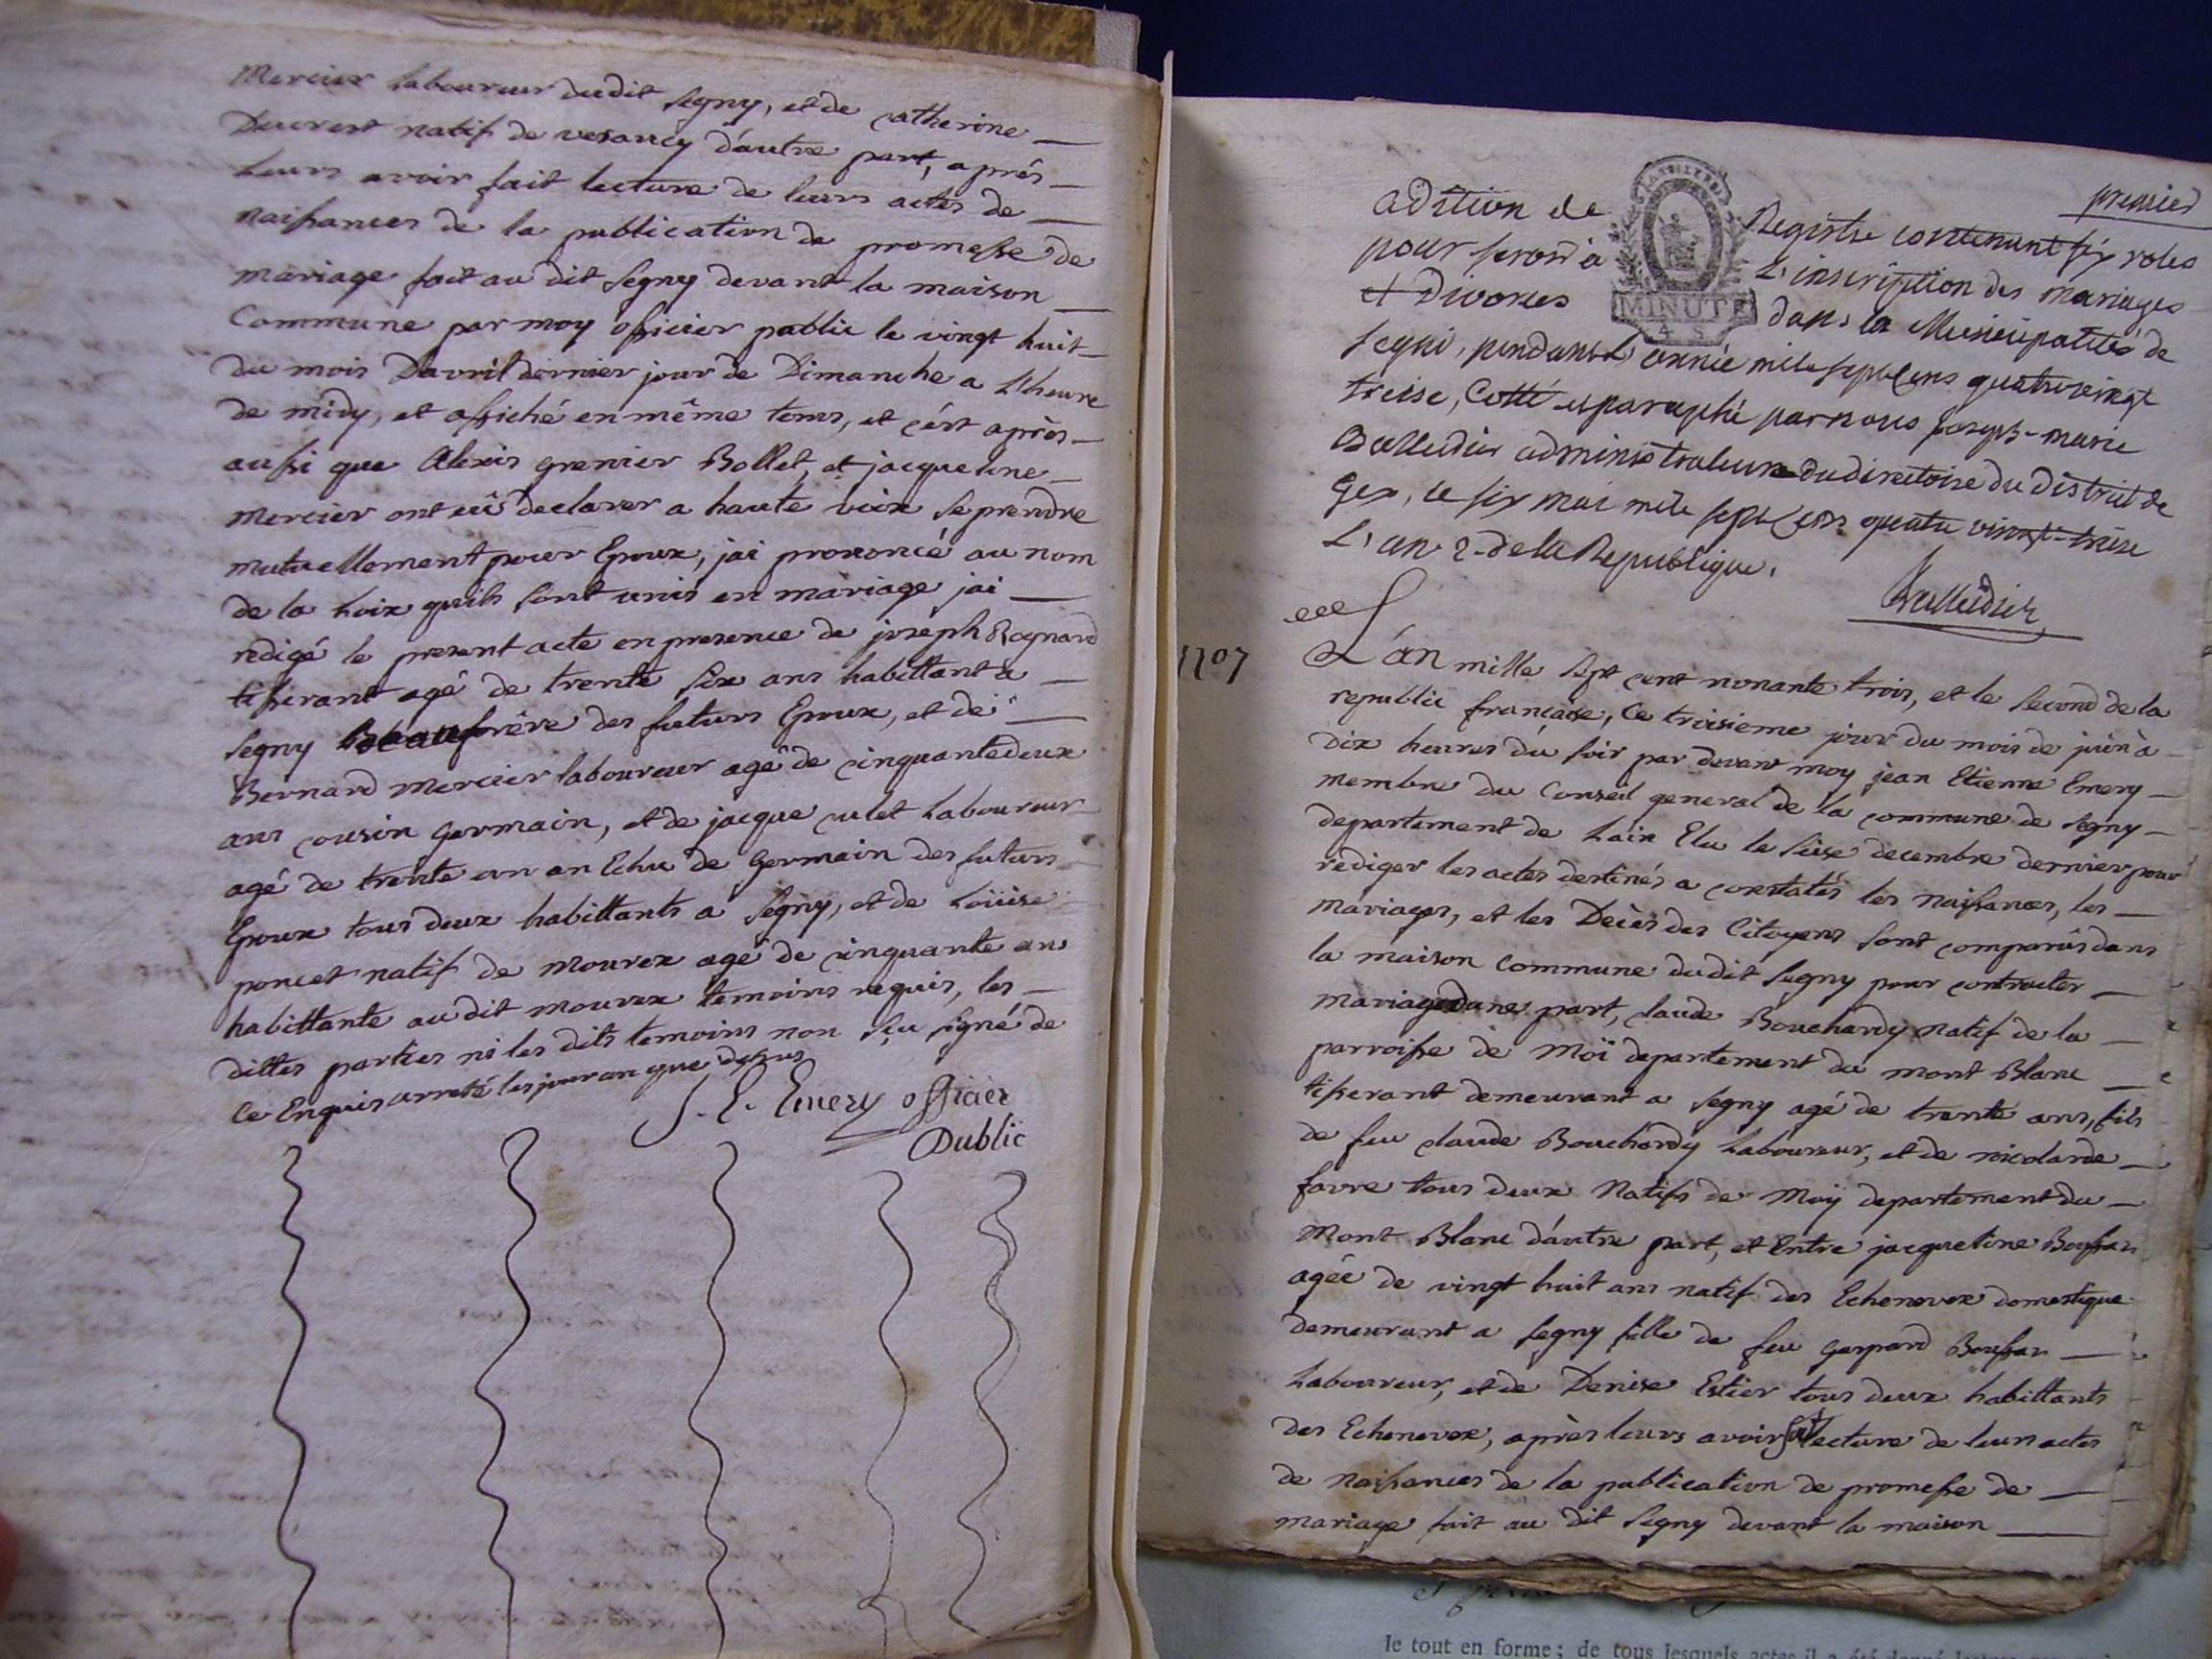 Mercier laboureur dudit Segny, et de catherine
Ducrest natif de vesancy d'autre part, après
Leurs avoir fait lecture de leurs actes de
naissances de la publication de promesse de
mariage fait au dit Segny devant la maison
Commune par moy officier public le vingt huit
du mois Davril dernier jour de Dimanche a Lheure
de midy, et affiché en même tems, et c'ést après
aussi que Alexis grenier Bollet, et jacqueline
Mercier ont eû declarer a haute voix se prendre
mutuellement pour Epoux, jai prononcé au nom
de la Loix quils sont unis en mariage jai
redigé le present acte en presence de joseph Rognard
tisserant agé de trente six ans habittant a
Segny Beaufrère des futurs Epoux, et de
Bernard Mercier laboureur agé de cinquante deux
ans cousin germain, et de jacque culet Laboureur
agé de trente un an Echu de Germain des futurs
Epoux tous deux habittants a Segny, et de Loüise
poncet natif de Mourex agé de cinquante ans
habittante audit mourex temoins requis, les
dittes parties ni les dits temoins non sçu signé de
ce Enquis arreté les jour an que dessus
J. E. Emery officier
Public
premier
adition de Registre contenant six roles
pour servir à L'inscription des mariages
et Divorses dans la Municipalité de
MINUTE
4 S
Segni, pendant L'année mile sept cens quatrevingt
treise, Cotté et paraphé par nous joseph-marie
Balleidier administrateur du directoire du District de
Gex, ce six mai mile sept cens quatre vingt-treise
L'an 2 de la Republique.
Balleidier
1707
L'án mille sept cent nonante trois, et le second de la
republic francaise, Ce troisieme jour du mois de juin a
Dix heures du soir par devant moy jean Etienne Emery
membre du Conseil general de la commune de Segny
departement de Lain Elu le seize decembre dernier pour
rediger les actes destinés a constatés les naissances, les
mariages, et les Décès des Citoyens sont comparûs dans
la maison commune dudit Segny pour contracter
mariage dune part, claude Bouchardy natif de la
parroisse de Moï departement du mont Blanc
tisserant demeurant a Segny agé de trente ans, fils
de feu claude Bouchardy Laboureur, et de nicolarde
favre tous deux Natifs de Moÿ departement du
Mont Blanc d'autre part, et Entre jacqueline
agée de vingt huit ans natif des Echenevex domestique
demeurant a Segny fille de feu gaspard
Laboureur, et de Denise Estier tous deux habittants
des Echenevex, après leurs avoir fait lecture de leurs actes
de naissances de la publication de promesse de
mariage fait au dit Segny devant la maison
le tout en forme; de tous lesquels actes il a été donné lecture